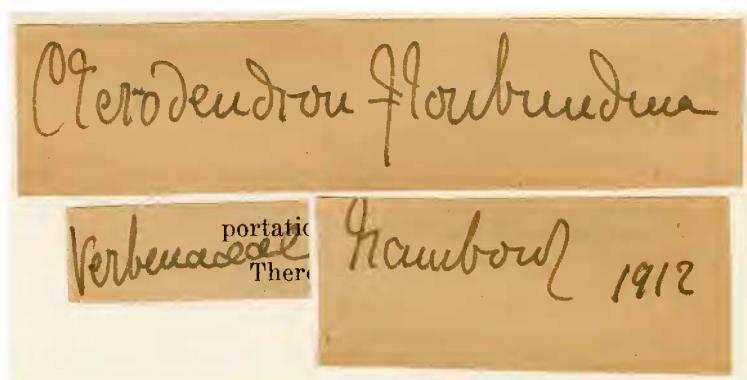 Clerodendron floribundum
Verbenaceae
portatio
There
Nambour 1912